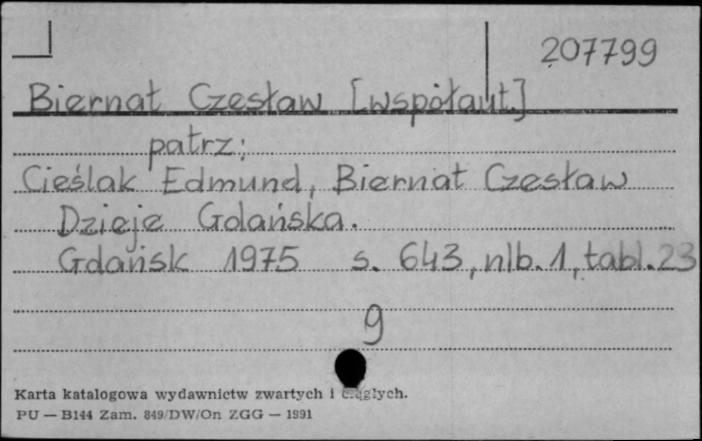 207799
Biernat Czesław [współaut.]
patrz:
Cieślak Edmund, Biernat Czesław
Dzieje Gdańska.
Gdańsk 1975 s. 643, nlb. 1, tabl. 23
9
Karta katalogowa wydawnictw zwartych i ciągłych.
PU — B144 Zam. 849/DW/On ZGG — 1991